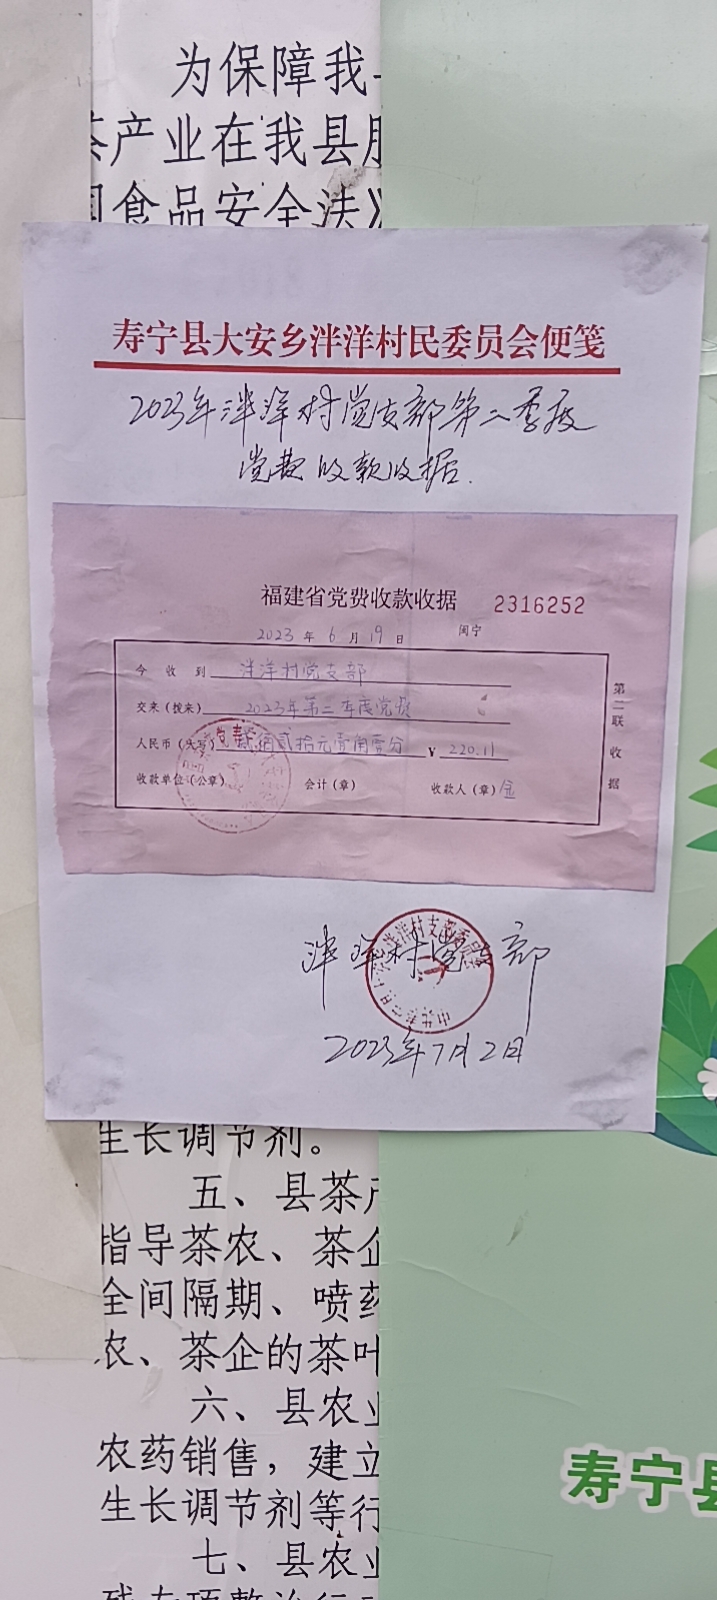 为保障我
茶产业在我县
国食品安全法》
寿宁县大安乡泮洋村民委员会便笺
2023年泮洋村党支部第二季度
党费收款收据.
福建省党费收款收据 2316252
2023 年 6 月 19 日 闽宁
今收到 泮洋村党支部
交来（拨来） 2023年第二季度党费
人民币（大写） 贰佰贰拾元壹角壹分 ¥ 220.11
收款单位（公章） 会计（章） 收款人（章）
第二联 收据
泮洋村党支部
2023年7月2日
生长调节剂。
五、县茶产
指导茶农、茶企
全间隔期、喷药
农、茶企的茶叶
六、县农业
农药销售，建立
生长调节剂等行
七、县农业
寿宁县